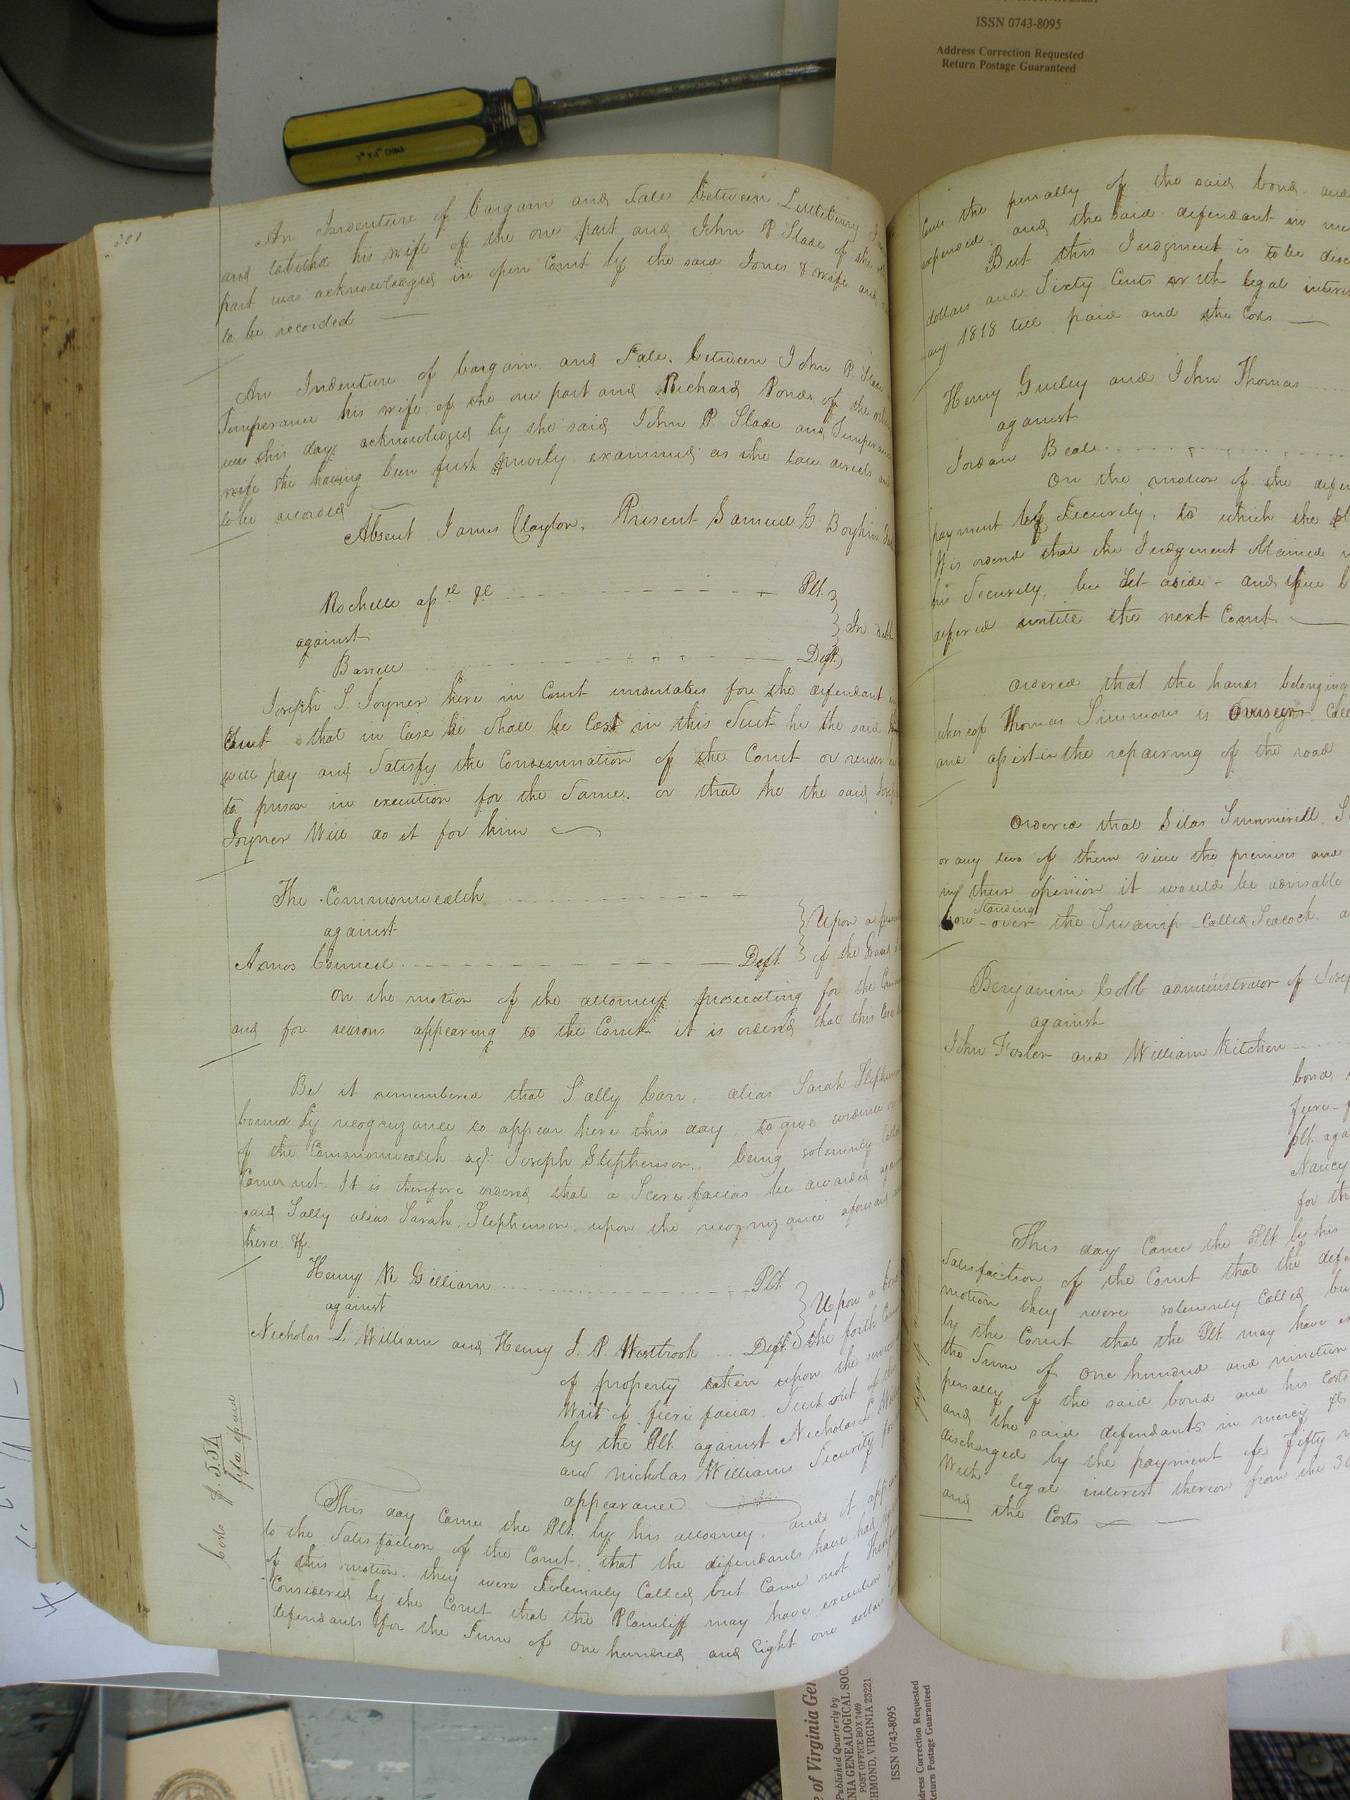 ISSN 0743-8095
Address Correction Requested
Return Postage Guaranteed
301
An Indenture of bargain and Sale between Littleberry
and Tabitha his wife of the one part and John P Slade of the
part was acknowledged in open Court by the said Jones & wife and
to be recorded
An Indenture of bargain and Sale, between John P. Slade
Temperance his wife of the one part and Richard Ponds of the other
was this day acknowledged by the said John P. Slade and Temperance
wife she having been first privily examined as the law directs and
to be recorded
Absent James Clayton, Present Samuel G Boykin
Rochelle assee &c Plt.
against In debt
Barrett Deft
Joseph S. Joyner here in Court undertakes for the defendant
Court that in Case he Shall be Cast in this Suit he the said
will pay and Satisfy the Condemnation of the Court or render
to prison in execution for the Same. or that he the said Joseph
Joyner Will do it for him
The Commonwealth
against Upon a
Amos Council Deft of the Grand
On the motion of the attorney prosecuting for the
and for reasons appearing to the Court it is ordered that this
Be it remembered that Sally Carr, alias Sarah Stephenson
bound by recognizance to appear here this day to give evidence
of the Commonwealth agt. Joseph Stephenson, being solemnly Called
Came not. It is therefore ordered that a Scire facias be awarded
said Sally alias Sarah Stephenson upon the recognizance aforesaid
here &c.
Henry R Gilliam Plt
against Upon a bond
Nicholas L. William and Henry J. P. Westbrook Defts the forth
of property taken upon the
Writ of fieri facias. Sued out of
by the Plt against Nicholas L
and Nicholas Williams Security for
appearance
Costs $ 5.54
This day Came the Plt by his attorney, and it
to the Satisfaction of the Court, that the defendants have had
of this motion. they were Solemnly Called but Came not
Considered by the Court that the Plaintiff may have execution
defendants for the Sum of one hundred and Eight one dollar
the penalty of the said bond and
and the said defendant in
But this Judgment is to be
dollars and Sixty Cents with legal
1818 till paid and the Costs
Henry Gurley and John Thomas
against
Jordan Beale
On the motion of the
payment by Security, to which the
It is ordered that the Judgment Obtained
his Security, be Set aside and
until the next Court
Ordered that the hands belonging
whereof Thomas Simmons is Overseer
and assist in the repairing of the road
Ordered that Silas Summerell,
or any two of them view the premises and
in their opinion it would be advisable
now standing over the Swamp Called Seacock
Benjamin Cobb administrator of
against
John Foster and William Kitchen
bond
plt. aga
Nancy
for th
This day Came the Plt. by his
Satisfaction of the Court that the
motion they were solemnly Called
by the Court that the Plt. may have
the Sum of one hundred and nineteen
penalty of the said bond and his Costs
and the said defendants in mercy
discharged by the payment of Fifty
With legal interest thereon from the
and the Costs
of Virginia Gen
Published Quarterly by
NIA GENEALOGICAL SOC
POST OFFICE BOX 7469
HMOND, VIRGINIA 23221
ISSN 0743-8095
dress Correction Requested
Return Postage Guaranteed